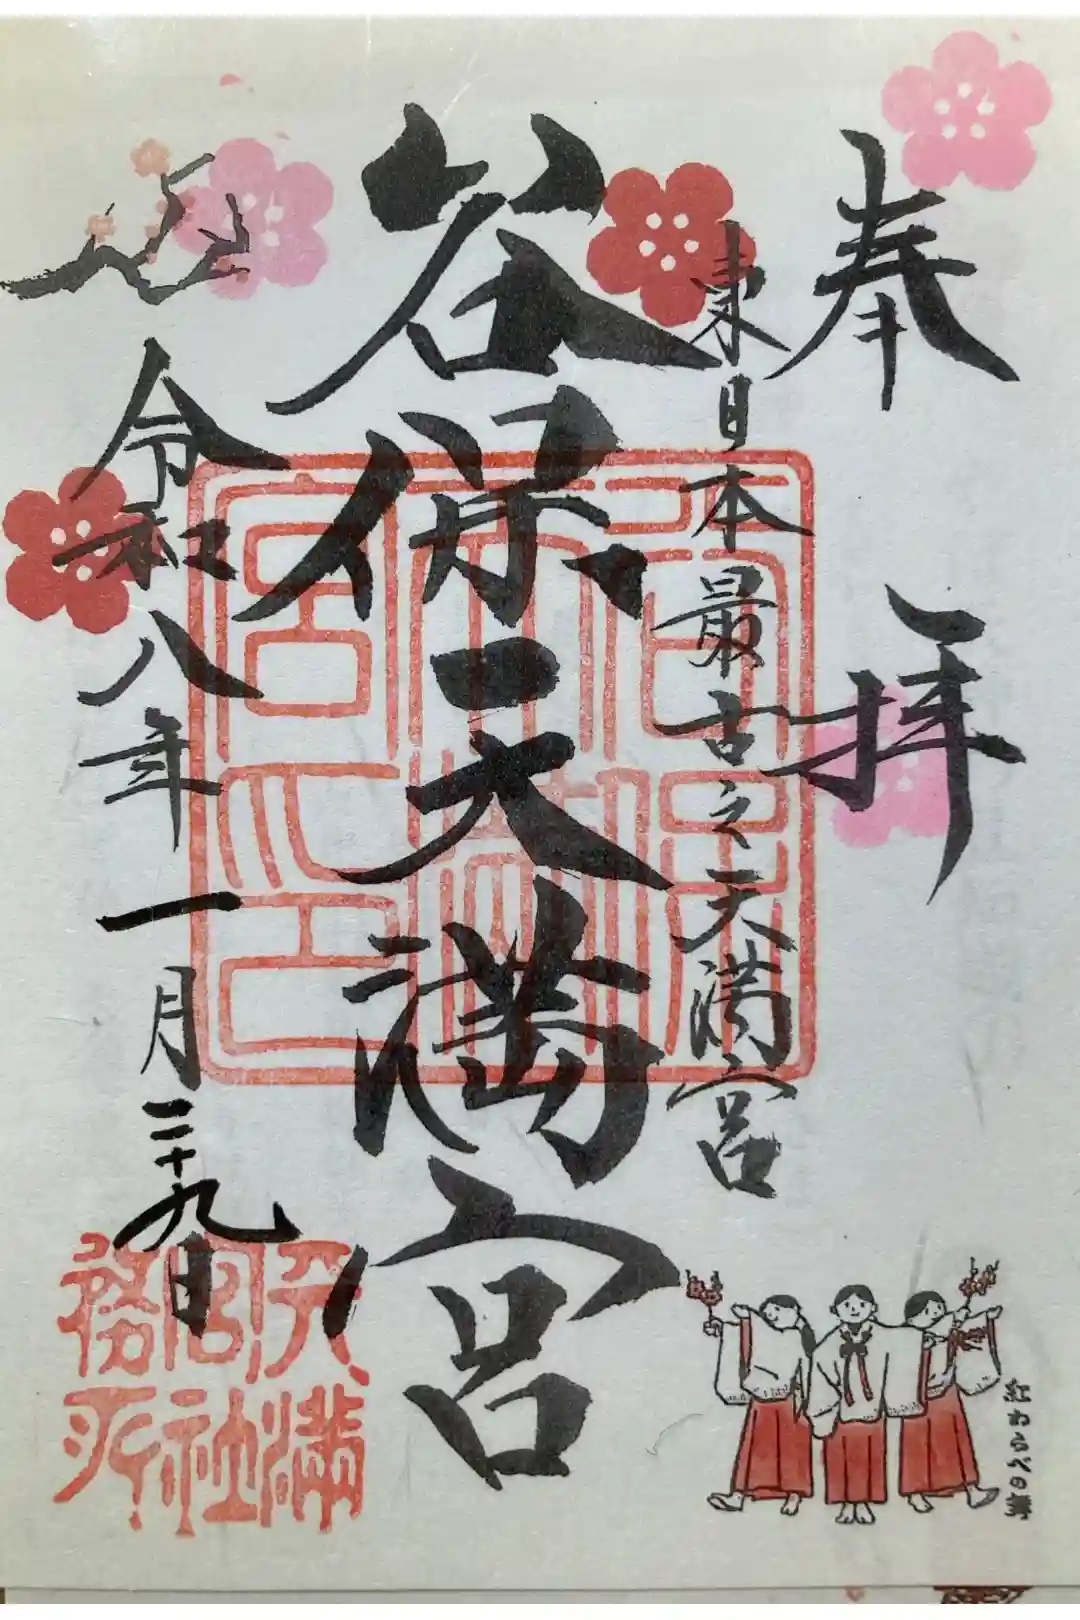 奉拝
東日本最古之天満宮
谷保天満宮
令和八年一月二十九日
谷保
天満
宮之印
天満
宮社
務所
紅わらべの舞